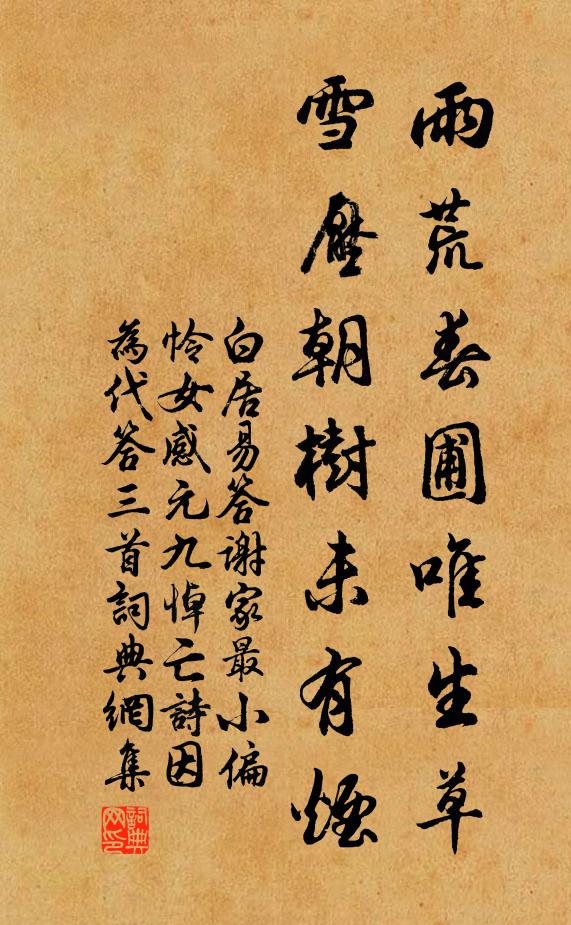 雨荒春圃唯生草
雪壓朝樹未有煙
白居易答謝家最小偏
憐女感元九悼亡詩因
為代答三首詞典網集
詞典网印